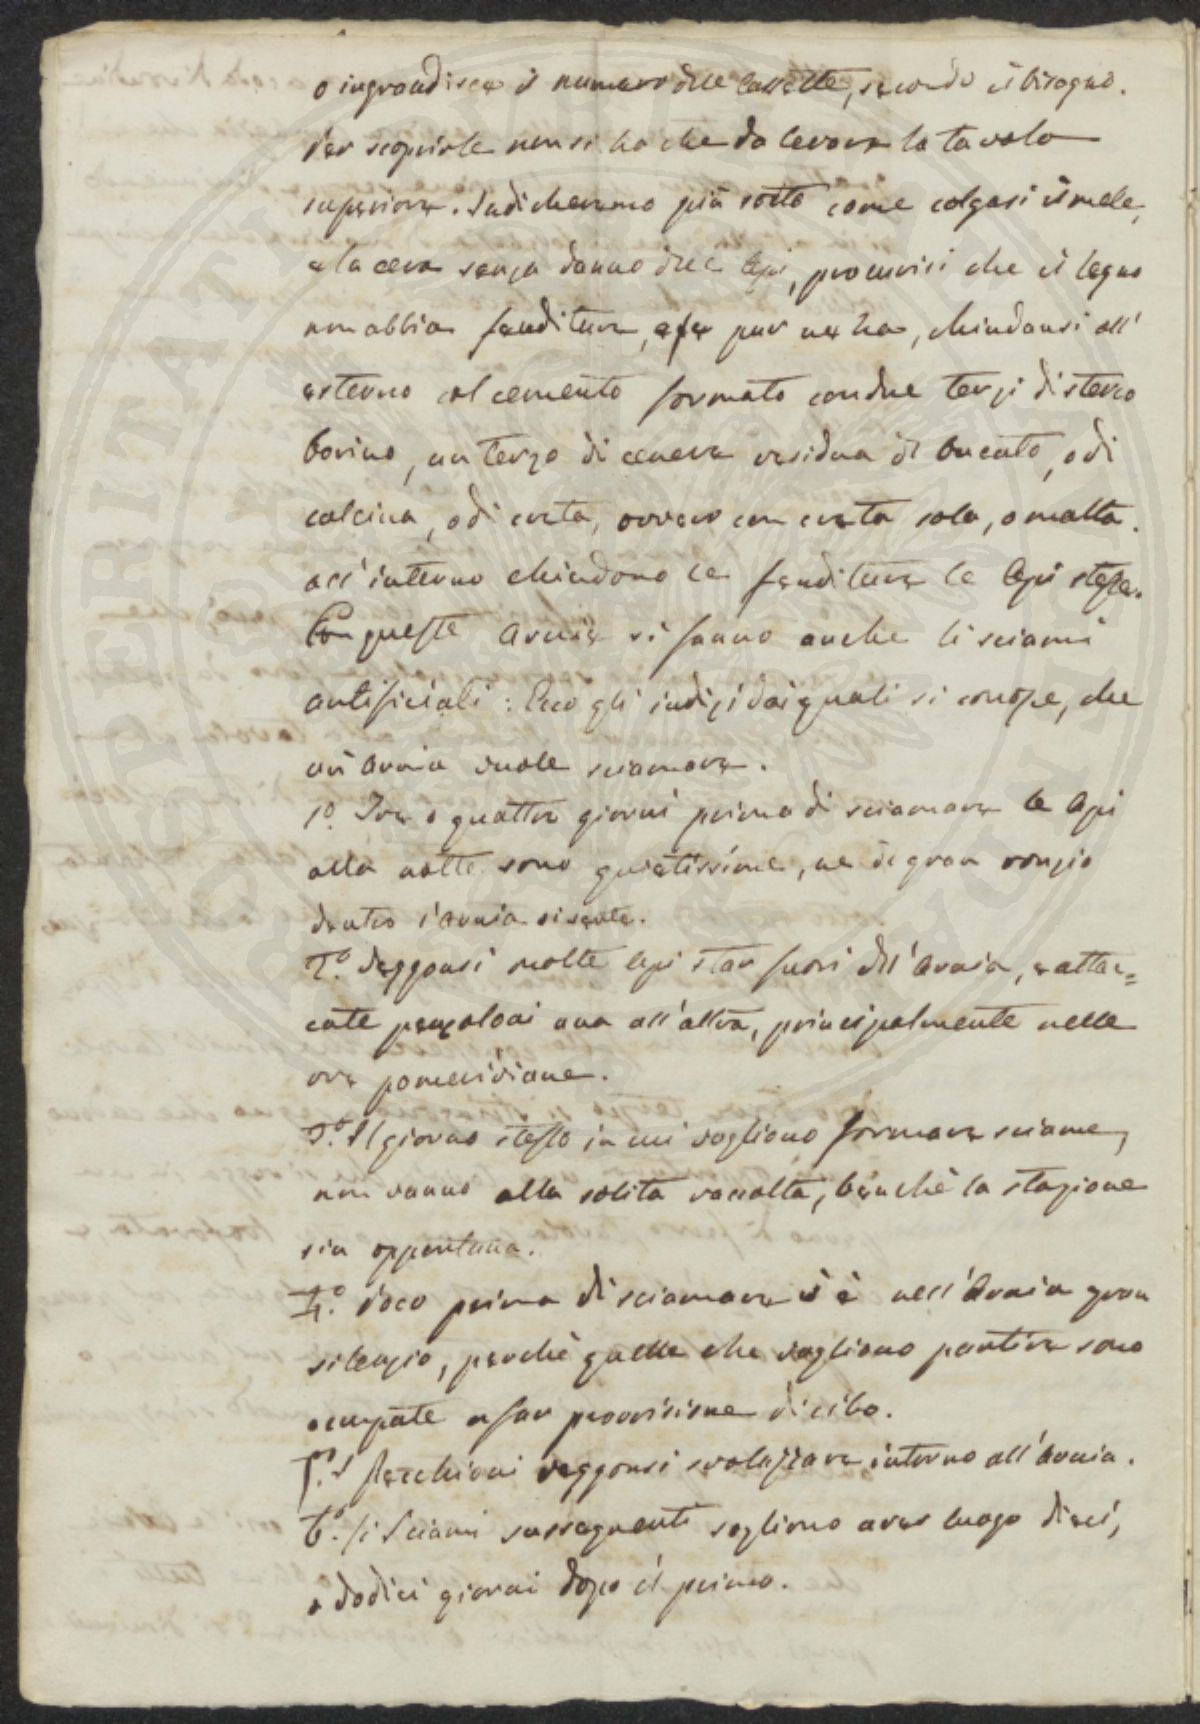 o ingrandisce il numero delle Cassette, secondo il bisogno.
Per scoprirle non si ha che da levare la tavola
superiore. Indicheremo più sotto come colgasi il mele,
e la cera senza danno delle Api, procurisi che il legno
non abbia fenditure, e se pur ne ha, chiudansi all'
esterno col cemento formato con due terzi di sterco
bovino, un terzo di cenere residua di bucato, o di
calcina, o di creta, ovvero con creta sola, o malta.
all'interno chiudono le fenditure le Api stesse.
Con queste Arnie si fanno anche li sciami
artificiali: Ecco gli indizi dai quali si conosce, che
un Arnia vuole sciamare.
1º. Tre o quattro giorni prima di sciamare le Api
alla notte sono quietissime, ne di gran ronzio
dentro l'Arnia si sente.
2º. Veggonsi molte Api star fuori dell'Arnia, e attac=
cate penzoloni una all'altra, principalmente nelle
ore pomeridiane.
3º. Il giorno stesso in cui vogliono formare sciame,
non vanno alla solita raccolta, benchè la stagione
sia opportuna.
4º. Poco prima di sciamare v'è nell'Arnia gran
silenzio, perchè quelle che vogliono partire sono
occupate a far provvisione di cibo.
5º. I Pecchioni veggonsi svolazzare intorno all'Arnia.
6º. Li Sciami susseguenti sogliono aver luogo dieci,
o dodici giorni dopo il primo.
PROSPERITATI